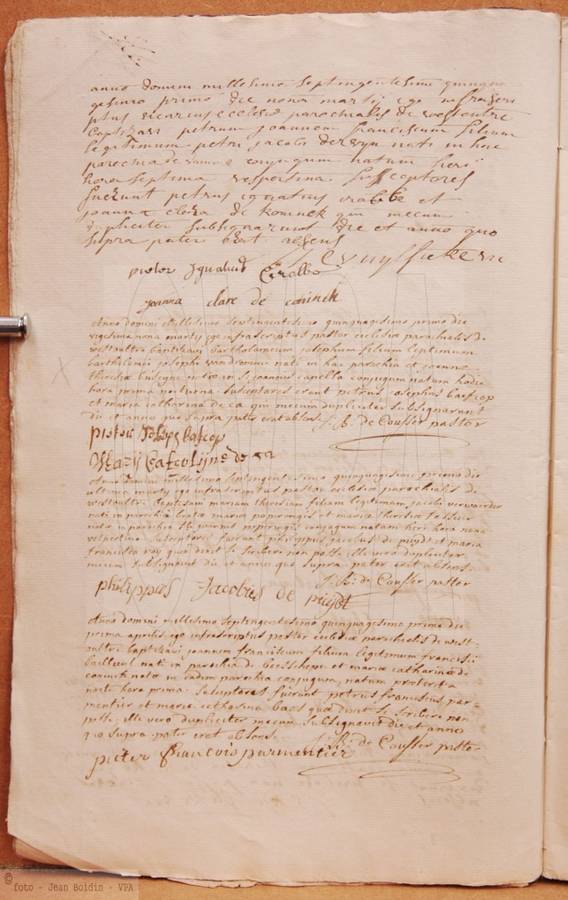 anno domini millesimo septingentesimo quinqua
gesimo primo die nona martij ego infrascri
ptus vicarius ecclesiæ parochialis de westoutre
baptizavi petrum joannem franciscum filium
legitimum petri jacobi nati in hac
parochia conjugum natum heri
hora septima vespertina susceptores
fuerunt petrus ignatius crabbe et
joanna clara de koninck qui mecum
dupliciter subsignarunt die et anno quo
supra pater erat absens
pieter Ignatius Crabbe
joanna clare de coninck
Anno domini millesimo septingentesimo quinquagesimo primo die
vigesima nona martij ego infrascriptus pastor ecclesiæ parochialis de
westoutre baptizavi bartholomeum josephum filium legitimum
josephi nati in hac parochia et joannæ
theresiæ natæ in capella conjugum natum hodie
hora prima nocturna susceptores erant petrus josephus
et maria catharina de ca qui mecum dupliciter subsignarunt
die et anno quo supra pater erat absens J.B. de Cousser pastor
pieter Joseph
Marij de Ca
Anno domini millesimo septingentesimo quinquagesimo primo die
ultima martij ego infrascriptus pastor ecclesiæ parochialis de
westoutre baptizavi mariam theresiam filiam legitimam jacobi
nati in parochia et mariæ theresiæ
natæ in parochia conjugum natam heri hora nona
vespertina susceptores fuerunt philippus jacobus de puydt et maria
francisca roy quæ dixit se scribere non posse ille vero dupliciter
mecum subsignavit die et anno quo supra pater erat absens
J.B. de Cousser pastor
philippus Jacobus de puydt
Anno domini millesimo septingentesimo quinquagesimo primo die
prima aprilis ego infrascriptus pastor ecclesiæ parochialis de west-
outre baptizavi joannem franciscum filium legitimum francisci
bailleul nati in parochia de et mariæ catharinæ de
natæ in eadem parochia conjugum, natum præterita
nocte hora prima. susceptores fuerunt petrus franciscus par-
mentier et maria catharina baes quæ dixit se scribere non
posse, ille vero dupliciter mecum subsignavit die et anno
quo supra pater erat absens J.B. de Cousser pastor
pieter francois parmentier
© foto - Jean Boldin - VPA